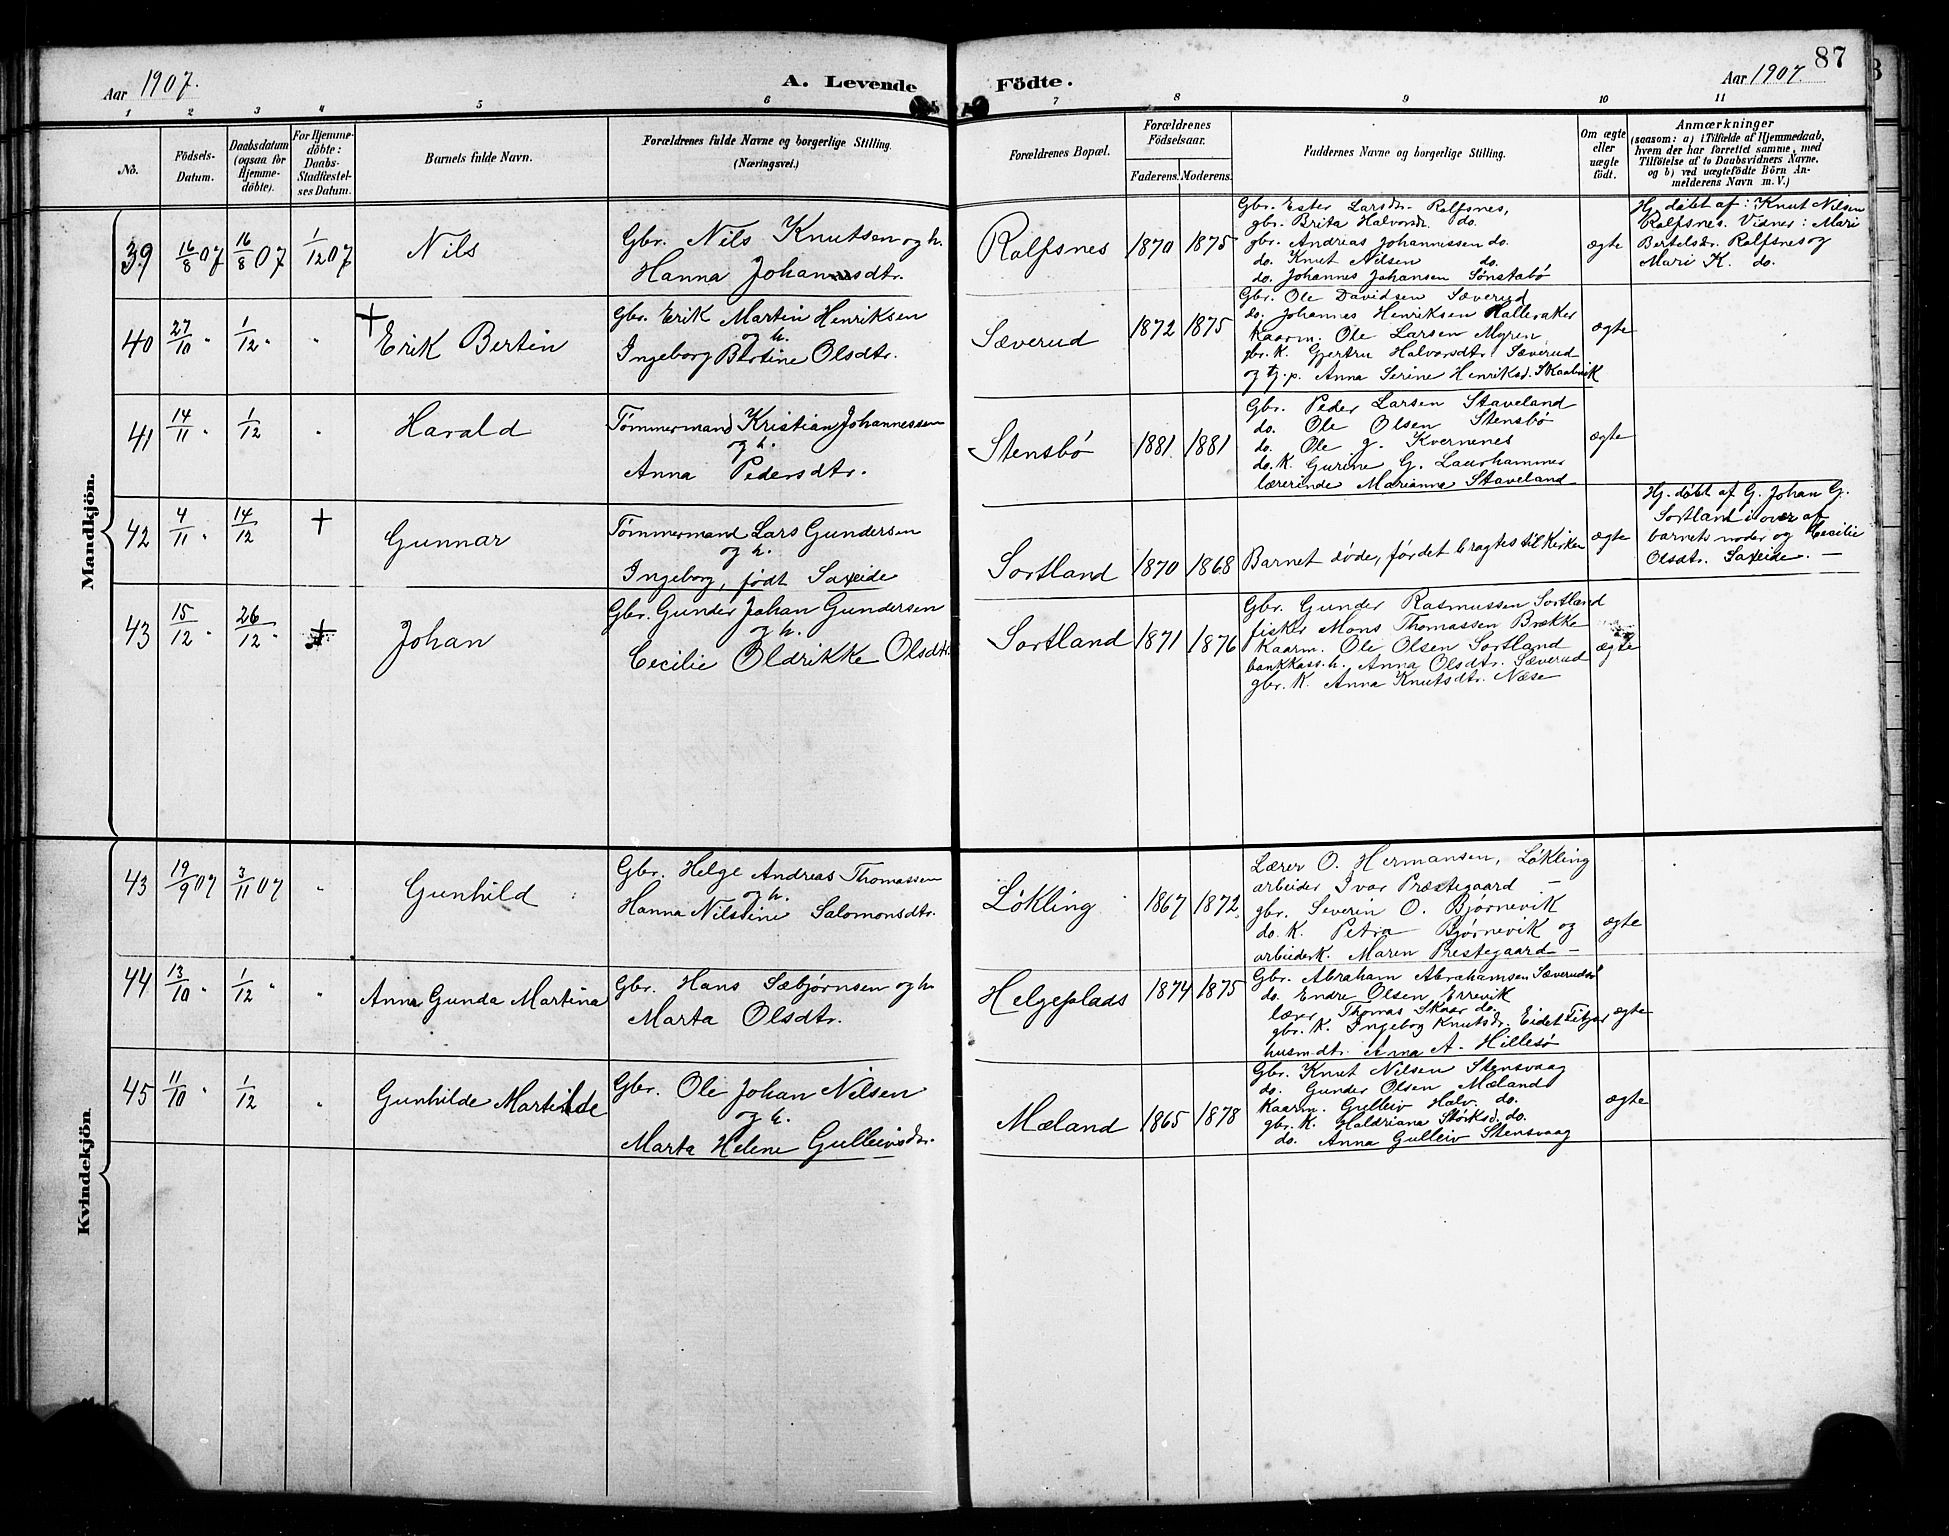 87
Aar 1907. A. Levende Födte. Aar 1907.
1 2 3 4 5 6 7 8 9 10 11
No.
Födsels-
Datum.
Daabsdatum
(ogsaa for
Hjemme-
döbte).
For Hjemme-
döbte:
Daabs-
Stadfæstel-
ses Datum.
Barnets fulde Navn.
Forældrenes fulde Navne og borgerlige Stilling.
(Næringsvei.)
Forældrenes Bopæl.
Forældrenes
Födselsaar.
Faderens. Moderens.
Faddernes Navne og borgerlige Stilling.
Om ægte
eller
uægte
födt.
Anmærkninger
(saasom: a) i Tilfælde af Hjemmedaab,
hvem der har forrettet samme, med
Tilföielse af to Daabsvidners Navne.
og b) ved uægtefödte Börn An-
melderens Navn m. V.)
Mandkjön.
39 16/8 07 16/8 07 1/12 07 Nils
Gbr. Nils Knutsen og h.
Hanna Johannsdtr.
Rolfsnes 1870 1875
Gbr. Ester Larsdr. Rolfsnes,
gbr. Brita Halvorsd. do.
gbr. Andreas Johannissen do.
do. Knut Nilsen do.
do. Johannes Johansen Sønstabø
ægte
Hj. døbt af: Knut Nilsen
Rolfsnes. Vidner: Mari
Bertelsdr. Rolfsnes og
Mari K. do.
40 27/10 " 1/12 " " + Erik Bertin
Gbr. Erik Martin Henriksen
og h.
Ingeborg Bertine Olsdtr.
Sæverud 1872 1875
Gbr. Ole Davidsen Sæverud
do. Johannes Henriksen Halleraker
Kaarm. Ole Larsen Myren
gbr. K. Gjertru Halvorsdtr. Sæverud
og tj. p. Anna Serine Henriksd. Skaalevik
ægte
41 14/11 " 1/12 " Harald
Tømmermand Kristian Johannessen
og h.
Anna Pedersdtr.
Stensbø 1881 1881
Gbr. Peder Larsen Staveland
do. Ole Olsen Stensbø
do. Ole J. Kvernenes
do. K. Gurine G. Laurhammer
lærerinde Marianna Staveland
ægte
42 4/11 " 14/12 + Gunnar
Tømmermand Lars Gundersen
og h.
Ingeborg, født Saxeide
Sortland 1870 1868
Barnet døde, før det bragtes til Kirken
ægte
Hj. døbt af G. Johan G.
Sortland i over af
barnets moder og Cecilie
Olsdtr. Saxeide. —
43 15/12 " 26/12 " + Johan
Gbr. Gunder Johan Gundersen
og h.
Cecilie Oldrikke Olsdtr.
Sortland 1871 1876
Gbr. Gunder Rasmussen Sortland
fisker Mons Thomassen Brække
Kaarm. Ole Olsen Sortland
bankkass. h. Anna Olsdtr. Sæverud
gbr. K. Anna Knutsdtr. Næse
ægte
Kvindekjön.
43 19/9 07 3/11 07 " Gunhild
Gbr. Helge Andreas Thomassen
og h.
Hanna Nilsine Salomonsdtr.
Løkling 1867 1872
Lærer O. Hermansen, Løkling
arbeider Ivar Præstegaard —
gbr. Severin O. Bjørnevik
do. K. Petra Bjørnevik og
arbeiderk. Maren Prestegaard —
ægte
44 13/10 " 1/12 " " Anna Gunda Martina
Gbr. Hans Sæbjørnsen og h.
Marta Olsdtr.
Helgeplads 1874 1875
Gbr. Abraham Abrahamsen Sæverud
do. Endre Olsen Errevik
lærer Thomas Skaar do.
gbr. K. Ingeborg Knutsdr. Eidet Fitjar
husm.dtr. Anna A. Hillesø
ægte
45 11/10 " 1/12 " Gunhilde Martilde
Gbr. Ole Johan Nilsen
og h.
Marta Helene Gulleivsdr.
Mæland 1865 1878
Gbr. Knut Nilsen Stensvaag
do. Gunder Olsen Mæland
Kaarm. Gulleiv Halv. do.
gbr. K. Haldriana Størksd. do.
do. Anna Gulleiv Stensvaag
ægte